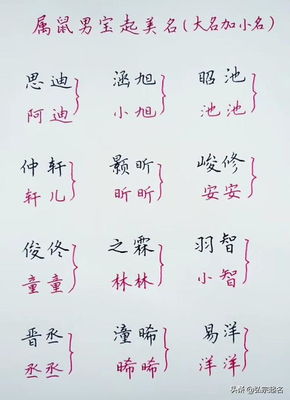 属鼠男宝起美名(大名加小名)
思迪 涵旭 昭池
阿迪 小旭 池池
仲轩 颢昕 峻修
轩儿 昕昕 安安
俊佟 之霖 羽智
童童 林林 小智
晋丞 潼晞 易洋
丞丞 晞晞 洋洋
头条@弘宗起名